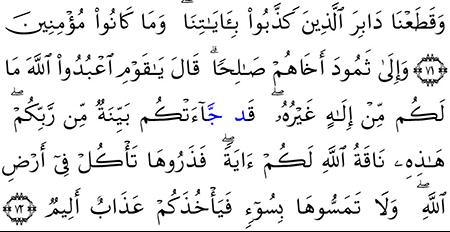 وَقَطَعْنَا دَابِرَ ٱلَّذِينَ كَذَّبُواْ بِـَٔايَـٰتِنَا ۖ وَمَا كَانُواْ مُؤْمِنِينَ
﴿٧١﴾ وَإِلَىٰ ثَمُودَ أَخَاهُمْ صَـٰلِحًا ۗ قَالَ يَـٰقَوْمِ ٱعْبُدُواْ ٱللَّهَ مَا
لَكُم مِّنْ إِلَـٰهٍ غَيْرُهُۥ ۖ قَد جَّآءَتْكُم بَيِّنَةٌ مِّن رَّبِّكُمْ ۖ
هَـٰذِهِۦ نَاقَةُ ٱللَّهِ لَكُمْ ءَايَةً ۖ فَذَرُوهَا تَأْكُلْ فِىٓ أَرْضِ
ٱللَّهِ ۖ وَلَا تَمَسُّوهَا بِسُوٓءٍ فَيَأْخُذَكُمْ عَذَابٌ أَلِيمٌ ﴿٧٢﴾